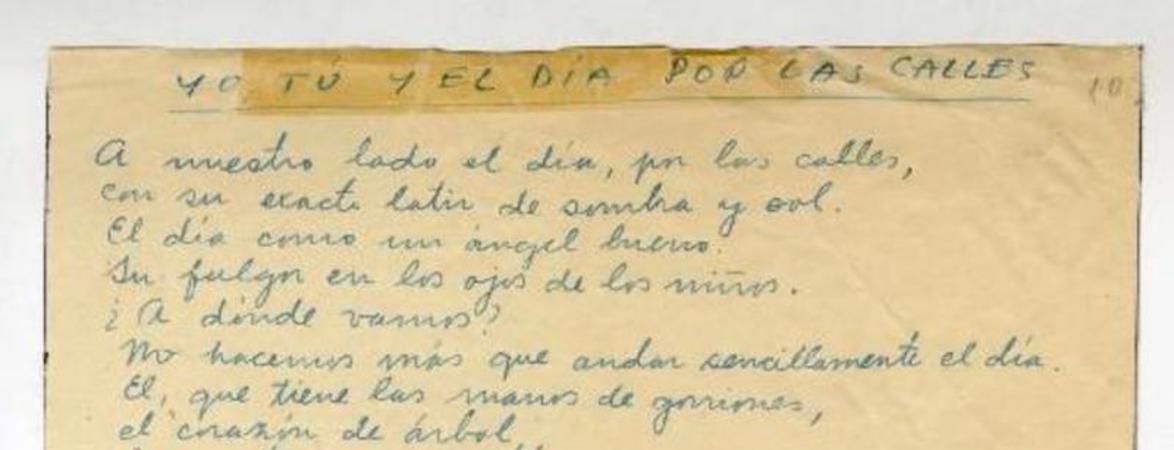 YO TÚ Y EL DÍA POR LAS CALLES
A nuestro lado el día, por las calles,
con su exacto latir de sombra y sol.
El día como un ángel bueno.
Su fulgor en los ojos de los niños.
¿A dónde vamos?
No hacemos más que andar sencillamente el día.
El, que tiene las manos de gorriones,
el corazón de árbol,